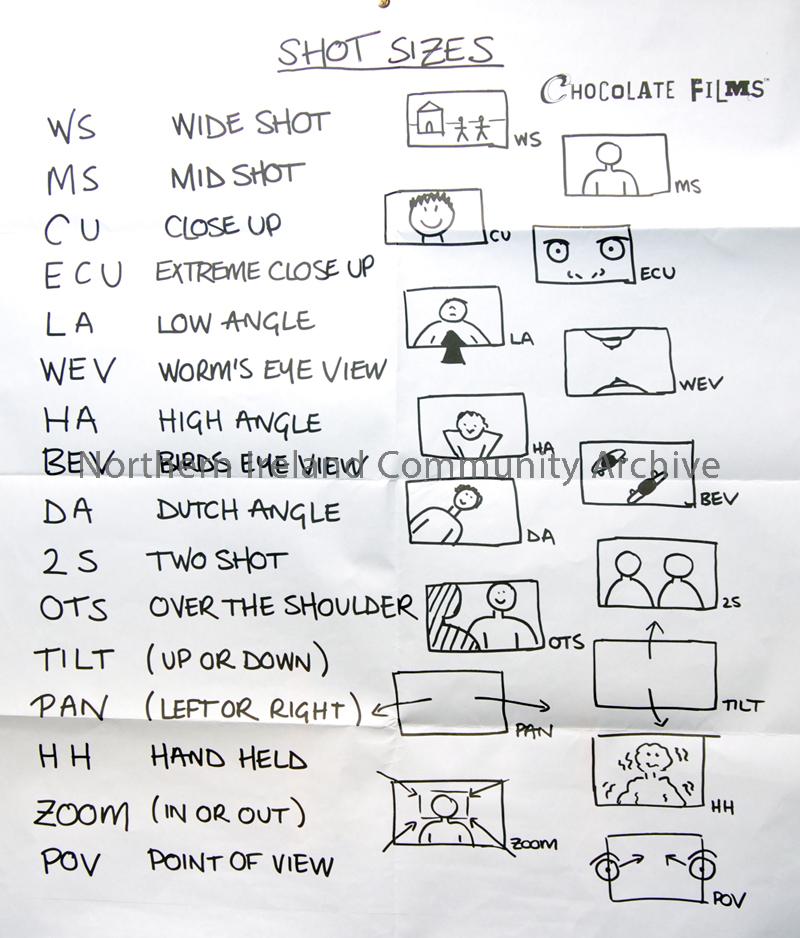 SHOT SIZES
CHOCOLATE FILMS™
WS WIDE SHOT
MS MID SHOT
CU CLOSE UP
ECU EXTREME CLOSE UP
LA LOW ANGLE
WEV WORM'S EYE VIEW
HA HIGH ANGLE
BEV BIRDS EYE VIEW
DA DUTCH ANGLE
2S TWO SHOT
OTS OVER THE SHOULDER
TILT (UP OR DOWN)
PAN (LEFT OR RIGHT)
HH HAND HELD
ZOOM (IN OR OUT)
POV POINT OF VIEW
WS
MS
CU
ECU
LA
WEV
HA
BEV
DA
2S
OTS
TILT
PAN
HH
ZOOM
POV
Northern Ireland Community Archive